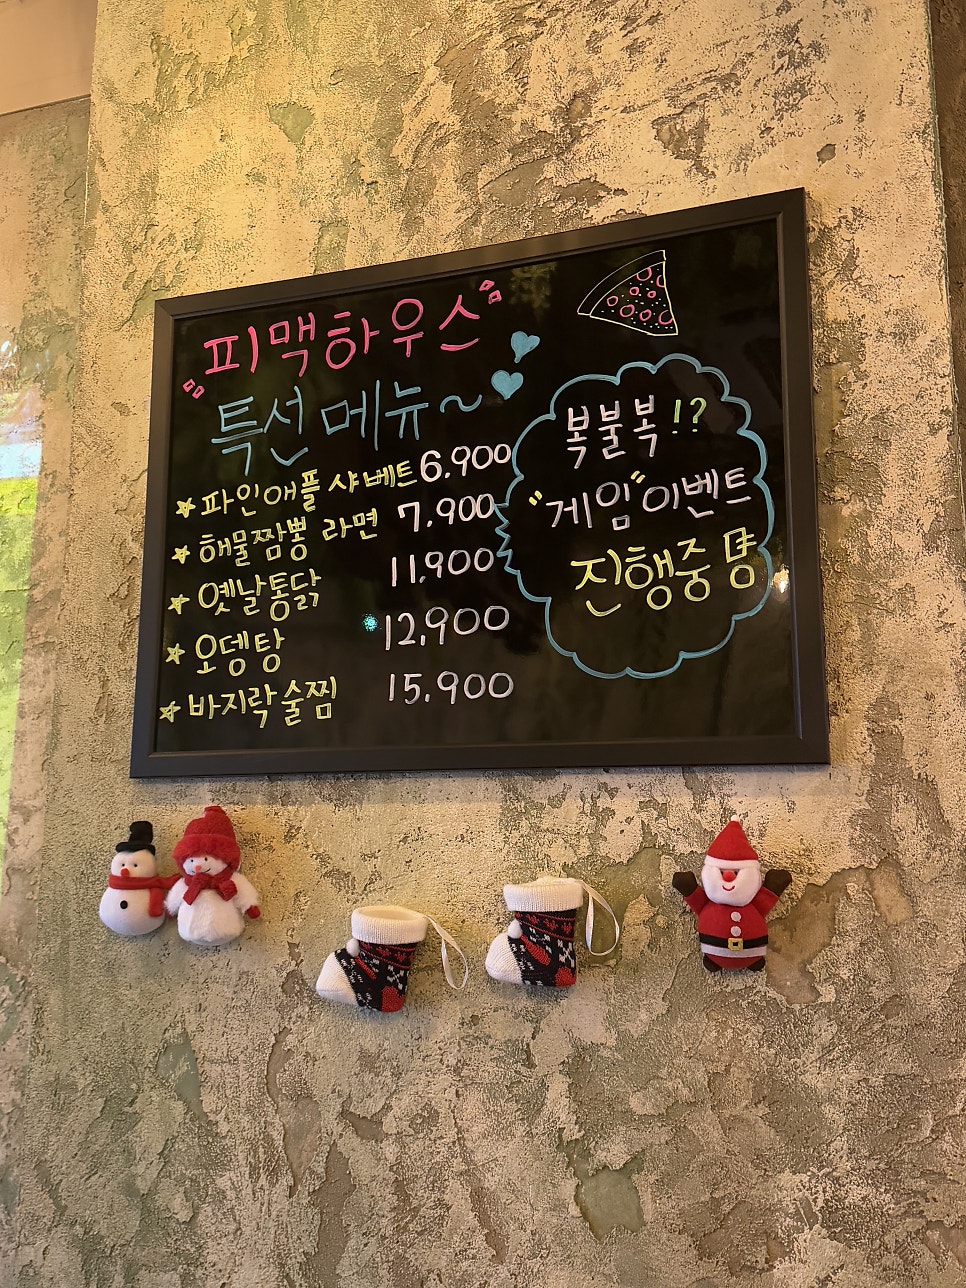 피맥하우스
특선 메뉴~
☆ 파인애플 샤베트 6.900
☆ 해물짬뽕 라면 7.900
☆ 옛날통닭 11.900
☆ 오뎅탕 12,900
☆ 바지락술찜 15.900
복불복!?
"게임"이벤트
진행중